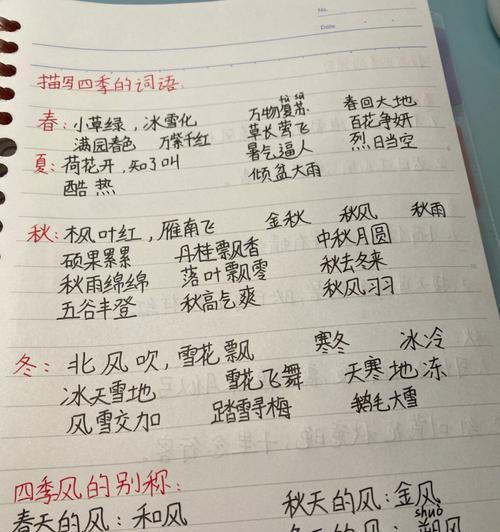 No.
Date
描写四季的词语:
春: 小草绿, 冰雪化 万物复苏 春回大地
满园春色 万紫千红 草长莺飞 百花争妍
夏: 荷花开, 知了叫 暑气逼人 烈日当空
酷热 倾盆大雨
秋: 枫叶红, 雁南飞 金秋 秋风 秋雨
硕果累累 丹桂飘香 中秋月圆
秋雨绵绵 落叶飘零 秋去冬来
五谷丰登 秋高气爽 秋风习习
冬: 北风吹, 雪花飘 寒冬 冰冷
冰天雪地 雪花飞舞 天寒地冻
风雪交加 踏雪寻梅 鹅毛大雪
四季风的别称:
春天的风: 和风 秋天的风: 金风
shuò